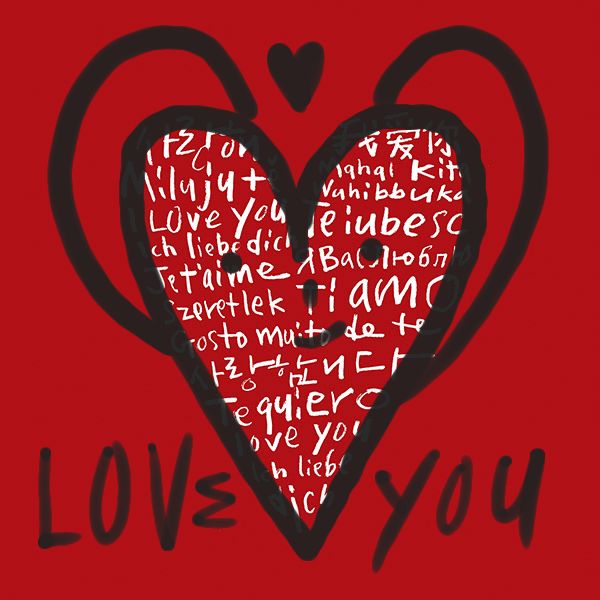 我爱你
Miluju tě
Mahal kita
Uhibbuka
LOVE YOU
Te iubesc
Ich liebe dich
Я Вас Люблю
Je t'aime
Ti amo
Szeretlek
Gosto muito de te
사랑합니다
Te quiero
love you
Ich liebe
dich
LOVE YOU